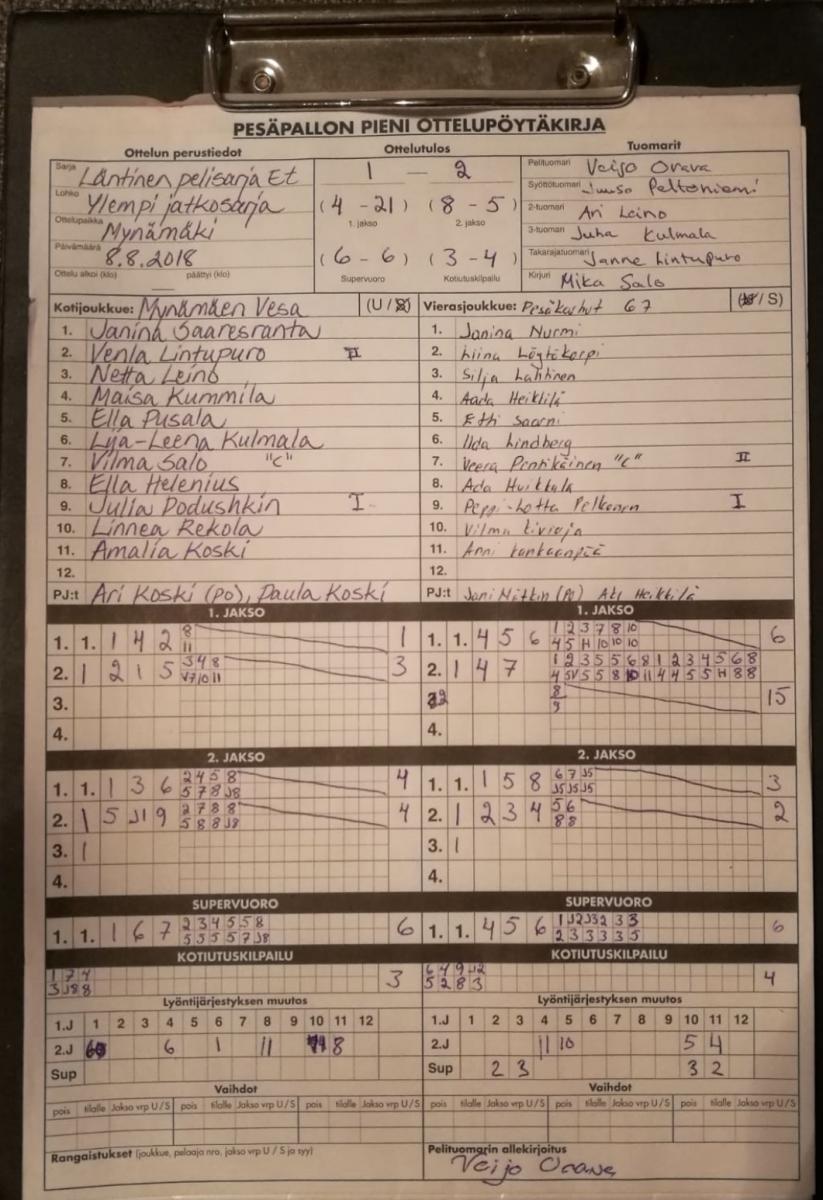 PESÄPALLON PIENI OTTELUPÖYTÄKIRJA
Ottelun perustiedot Ottelutulos Tuomarit
Sarja Läntinen pelisarja Et
Lohko Ylempi jatkosarja
Ottelupaikka Mynämäki
Päivämäärä 8.8.2018
Ottelu alkoi (klo) päättyi (klo)
1 – 2
(4 - 21) (8 - 5)
1. jakso 2. jakso
(6 - 6) (3 - 4)
Supervuoro Kotiutuskilpailu
Pelituomari Veijo Orava
Syöttötuomari Juuso Peltoniemi
2-tuomari Ari Leino
3-tuomari Juha Kulmala
Takarajatuomari Janne Lintupuro
Kirjuri Mika Salo
Kotijoukkue: Mynämäen Vesa (U / S)
1. Janina Saaresranta
2. Venla Lintupuro II
3. Netta Leino
4. Maisa Kummila
5. Ella Pusala
6. Lyja-Leena Kulmala
7. Vilma Salo "C"
8. Ella Helenius
9. Julia Podushkin I
10. Linnea Rekola
11. Amalia Koski
12.
PJ:t Ari Koski (PO), Paula Koski
Vierasjoukkue: Pesäkarhut 67 (U / S)
1. Janina Nurmi
2. Liina Löytökorpi
3. Silja Lahtinen
4. Aada Heikkilä
5. Etti Saarni
6. Ilda Lindberg
7. Veera Pentikäinen "C" II
8. Ada Huikkala
9. Peppi-Lotta Pelkonen I
10. Vilma
11. Anni Kankaanpää
12.
PJ:t Jani Mätkin (PJ) Aki Heikkilä
1. JAKSO
1. 1. 1 4 2 8 1
11
2. 1 2 1 5 3 4 8 3
V7 10 11
3.
4.
1. JAKSO
1. 1. 4 5 6 1 2 3 7 8 10 6
4 5 H 10 10 10
2. 1 4 7 1 2 3 5 5 6 8 1 2 3 4 5 6 8
4 5V 5 5 8 10 11 4 4 5 5 H 8 8
8 15
9
4.
2. JAKSO
1. 1. 1 3 6 2 4 5 8 4
5 7 8 J8
2. 1 5 J1 9 2 7 8 8 4
5 8 8 J8
3. 1
4.
2. JAKSO
1. 1. 1 5 8 6 7 J5 3
J5 J5 J5
2. 1 2 3 4 5 6 2
8 8
3. 1
4.
SUPERVUORO
1. 1. 1 6 7 2 3 4 5 5 8 6
5 5 5 5 7 J8
SUPERVUORO
1. 1. 4 5 6 1 J2 J3 2 3 3 6
2 3 3 3 3 5
KOTIUTUSKILPAILU
1 7 4 3
3 J8 8
KOTIUTUSKILPAILU
6 4 9 J2 4
5 2 8 3
Lyöntijärjestyksen muutos
1.J 1 2 3 4 5 6 7 8 9 10 11 12
2.J 6 1 11 8
Sup
Lyöntijärjestyksen muutos
1.J 1 2 3 4 5 6 7 8 9 10 11 12
2.J 11 10 5 4
Sup 2 3 3 2
Vaihdot
pois tilalle Jakso vrp U / S pois tilalle Jakso vrp U / S pois tilalle Jakso vrp U / S
Vaihdot
pois tilalle Jakso vrp U / S pois tilalle Jakso vrp U / S pois tilalle Jakso vrp U / S
Rangaistukset (joukkue, pelaaja nro, jakso vrp U / S ja syy)
Pelituomarin allekirjoitus
Veijo Orava